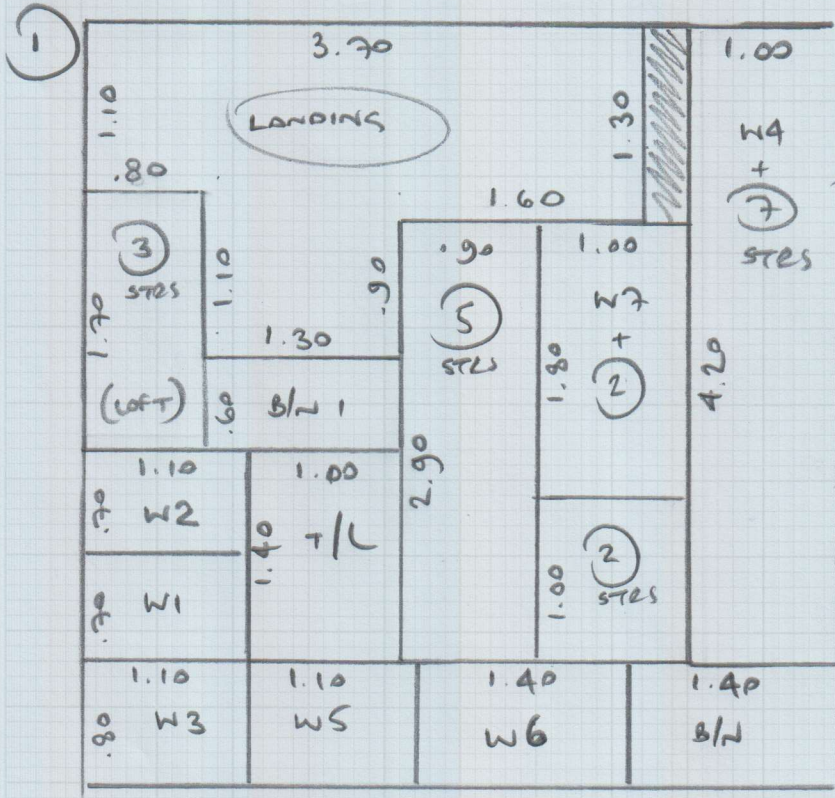 1
3.70
1.00
1.10
LANDING
1.30
W4
+
7
STRS
.80
1.60
3
STRS
1.10
.90
.90
1.00
5
STRS
W7
+
2
1.70
1.30
1.80
4.20
(LOFT)
.60
B/N 1
1.10
1.00
2.90
.70
W2
1.40
T/L
1.00
2
STRS
.70
W1
1.10
1.10
1.40
1.40
.80
W3
W5
W6
B/N